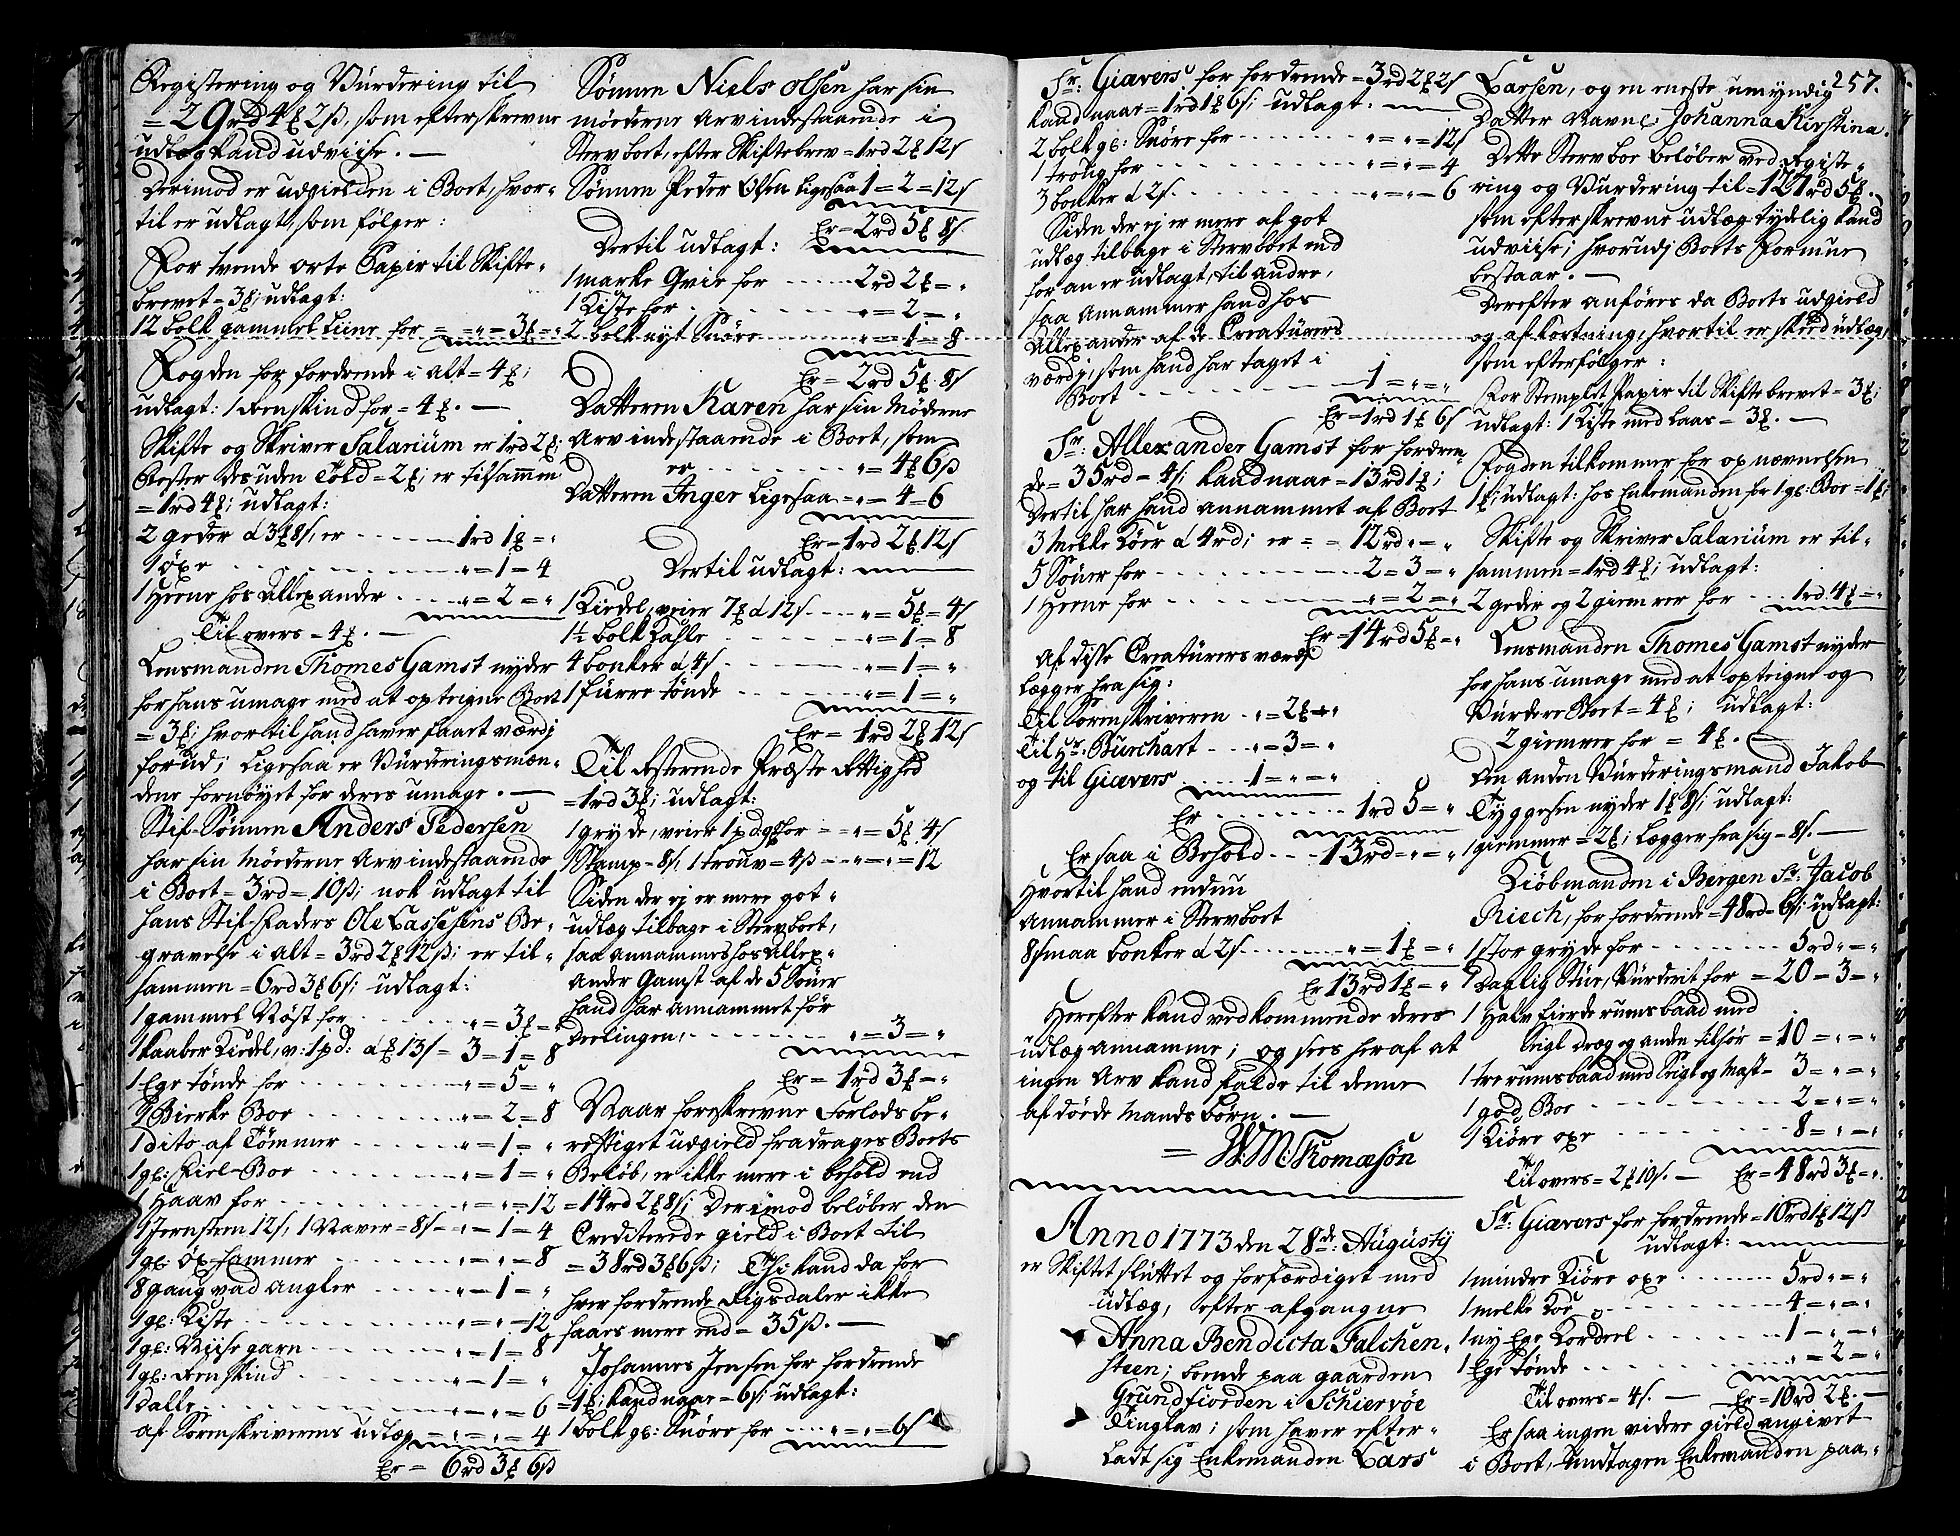 Registering og Vurdering til
= 29rd 4 ꝑ 2 ß, som efterskrevne
udlæg kand udviise. —
Derimod er udgielden i Boet, hvor-
til er udlagt, som følger:
For tvende orts Papir til Skifte-
brevet = 3ꝑ; udlagt:
12 bolk gammel Liine for = „ = 3ꝑ = „
Fogden for fordrende i alt = 4ꝑ;
udlagt: 1 Reenskind for = 4ꝑ. —
Skifte og Skriver Salarium er 1rd 2ꝑ;
desuden Told = 2ꝑ; er tilsammen
= 1rd 4ꝑ; udlagt:
2 geder á 3ꝑ 8s, er — 1rd 1ꝑ = „
1 öxe „ = 1 = 4
1 Heene hos Allexander „ = 2 = „
Til overs = 4ꝑ. —
Lensmanden Thomes Gamst nyder
for hans umage med at opteigne Boet
= 3ꝑ; hvortil hand haver faaet værdj
forud; Ligesaa er Vurderingsmæn-
dene fornøyet for deres umage. —
Stif-Sønnen Anders Pedersen
har sin Møderne Arv indestaaende
i Boet = 3rd = 10ß; nok udlagt til
hans Stif-Faders Ole Lassesens Be-
gravelse i alt = 3rd 2ꝑ 12ß; er til-
sammen = 6rd 3ꝑ 6s; udlagt:
1 gammel Nøst for „ = 3ꝑ = „
1 kaaber Kiedel, v: 1pd: á ꝑ 13s = 3 = 1 = 8
1 Ege tønde for „ = 5 = „
1 Bierke Boe „ = 2 = 8
1 dito af Tømmer „ = 1 = „
1 gl: Fiel-Boe „ = 1 = „
1 Haav for „ = „ = 12
1 Jernsteen 12s, 1 Naver = 8s = „ = 1 = 4
1 gl: öx-hammer „ = „ = 8
8 gang vad Angler „ = 1 = „
1 gl: Kiste „ = „ = 12
1 gl: Niise garn „ = 1 = 8
1 gl: Reenskind „ = 1 = „
1 balle „ = „ = 6
af Sorenskriverens udlæg „ = „ = 4
Er = 6rd 3ꝑ 6ß
Sønnen Niels Olsen har sin
møderne Arv indestaaende i
Stervboet, efter Skiftebrev = 1rd 2ꝑ 12s
Sønnen Peder Olsen ligesaa 1 = 2 = 12s
Er = 2rd 5ꝑ 8s
Dertil udlagt:
1 marke Qvie for 2rd 2ꝑ = „
1 Kiste for „ = 2 = „
2 bolk nyt Snøre „ = 1 = 8
Er = 2rd 5ꝑ 8s
Datteren Karen har sin Møderne
Arv indestaaende i Boet, som
er „ = 4ꝑ 6ß
Datteren Inger ligesaa = „ = 4 = 6
Er = 1rd 2ꝑ 12s
Dertil udlagt:
1 Kiedel, veier 7ꝑ á 12s „ = 5ꝑ = 4s
1½ bolk Fahle „ = 1 = 8
4 bonker á 4s „ = 1 = „
1 furre tønde „ = 1 = „
Er = 1rd 2ꝑ 12s
Til Resterende Præste Rettighed
= 1rd 3ꝑ; udlagt:
1 gryde, veier 1pd for „ = 5ꝑ 4s
1 Stamp = 8s, 1 trouv = 4ß „ = „ = 12
Siden der ej er mere got-
udlæg tilbage i Stervboet,
saa annammes hos Allex-
ander Gamst af de 5 Souer
hand har annammet før
Deelingen, „ = 3 = „
Er = 1rd 3ꝑ = „
Naar foreskrevne Forlods be-
rettiget udgield fradrages Boets
Beløb, er ikke mere i behold end
= 14rd 2ꝑ 8s; Derimod beløber den
Crediterede gield i Boet til
= 38rd 3ꝑ 6ß; Thi kand da for
hver fordrende Rigsdaler ikke
faaes mere end = 35ß. —
Johannes Jensen har fordrende
= 1ꝑ; kand naae = 6s; udlagt:
1 bolk gl: Snøre for „ = „ = 6s
257.
Sr: Giævers for fordrende = 3rd 2ꝑ 2s
Kand naae = 1rd 1ꝑ 6s; udlagt:
2 bolk gl: Snøre for „ = „ = 12s
1 troug for „ = „ = 4
3 bonker á 2s „ = „ = 6
Siden der ej er mere af got
udlæg tilbage i Stervboet end
foran er udlagt, til andre,
saa annammer hand hos
Allexander af de Creaturers
værdj, som hand har taget i
Boet 1 = „ = „
Er = 1rd 1ꝑ 6s
Sr: Allexander Gamst for fordren-
de = 35rd = 4s; kand naae = 13rd 1ꝑ;
Dertil har hand annammet af Boet
3 Melke Køer á 4rd; er = 12rd = „ = „
5 Souer for 2 = 3 = „
1 Heene for „ = 2 = „
Er = 14rd 5ꝑ = „
Af disse Creaturers værdj
lægger fra sig:
Til Sorenskriveren „ = 2ꝑ = „
Til Hr: Burchart „ = 3 = „
og til Giævers 1 = „ = „
Er 1rd 5 = „
Er saa i Behold 13rd = „ = „
Hvortil hand endnu
Annammer i Stervboet
8 smaa bonker á 2s „ = 1ꝑ = „
Er 13rd 1ꝑ = „
Herefter kand vedkommende deres
udlæg annamme; og sees heraf at
ingen Arv kand falde til denne
afdøde Mands børn. —
= W. M. Thomæsøn
Anno 1773 den 28de: Augustij
er Skiftet sluttet og forfærdiget med
udlæg, efter afgangne
Anna Bendicta Falchen-
steen; boende paa gaarden
Grundfiorden i Schiervøe
Tinglav; som haver efter-
ladt sig Enkemanden Lars
Larsen, og en eneste umyndig
Datter Navnl: Johanna Kirstina.
Dette Stervboe beløber ved Registe-
ring og Vurdering til = 127rd 5ꝑ.
som efterskrevne udlæg tydelig kand
udviise; hvorudj Boets Formue
bestaar. —
Derefter anføres da Boets udgield
og afkortning, hvortil er skeed udlæg,
som efterfølger:
For Stemplet Papir til Skiftebrevet = 3ꝑ;
udlagt: 1 Kiste med Laas = 3ꝑ. —
Fogden tilkommer for opnævnelsen
1ꝑ; udlagt: hos Enkemanden for 1 gl: Boe = 1ꝑ;
Skifte og Skriver Salarium er til-
sammen = 1rd 4ꝑ; udlagt:
2 geder og 2 giemrer for 1rd 4ꝑ = „
Lensmanden Thomes Gamst nyder
for hans umage med at opteigne og
Vurdere Boet = 4ꝑ; udlagt:
2 giemrer for = 4ꝑ. —
Den anden Vurderingsmand Jakob
Tyggesen nyder 1ꝑ 8s; udlagt:
1 giemmer = 2ꝑ; Lægger fra sig = 8s. —
Kiøbmanden i Bergen Sr: Jacob
Riech, for fordrende = 48rd = 6s; udlagt:
1 stor gryde for 5rd = „ = „
1 Daglig Stue, Vurderit for = 20 = 3 = „
1 Halv fierde rums baad med
Seigl dræg og anden tilhør = 10 = „ = „
1 tre rums baad med Seigl og Mast = 3 = „ = „
1 god Boe 2 = „ = „
1 Kiøre oxe 8 = „ = „
Til overs = 2ꝑ 10s. — Er = 48rd 3ꝑ = „
Sr: Giævers for fordrende = 10rd 1ꝑ 12ß
udlagt:
1 mindre Kiøre oxe 5rd = „ = „
1 melke Koe 4 = „ = „
1 ny Ege Kordeel 1 = „ = „
1 Ege tønde „ = 2 = „
Til overs = 4s. — Er = 10rd 2ꝑ. —
Er saa ingen videre gield angivet
i Boet, Undtagen Enkemanden paa-